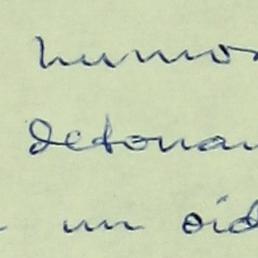 humo
detonan
un oíd